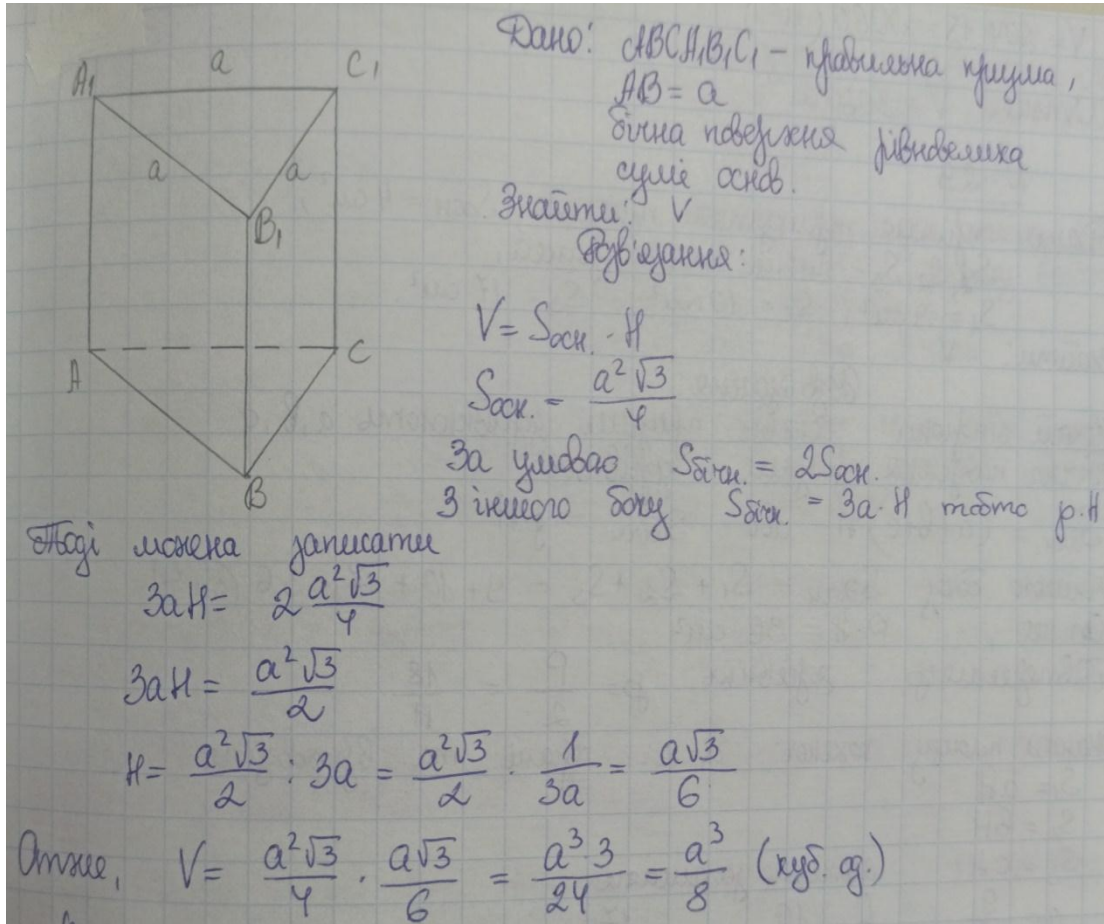 Дано: ABCA₁B₁C₁ – правильна призма,
AB = a
бічна поверхня рівновелика
сумі основ.
Знайти: V
Розв'язання:
A₁ a C₁
a a
B₁
A C
B
V = Sосн. · H
Sосн. = a²√3/4
За умовою Sбічн. = 2Sосн.
З іншого боку Sбічн. = 3a·H тобто p·H
Тоді можена записати
3aH = 2 a²√3/4
3aH = a²√3/2
H = a²√3/2 : 3a = a²√3/2 · 1/3a = a√3/6
Отже, V = a²√3/4 · a√3/6 = a³·3/24 = a³/8 (куб. од.)